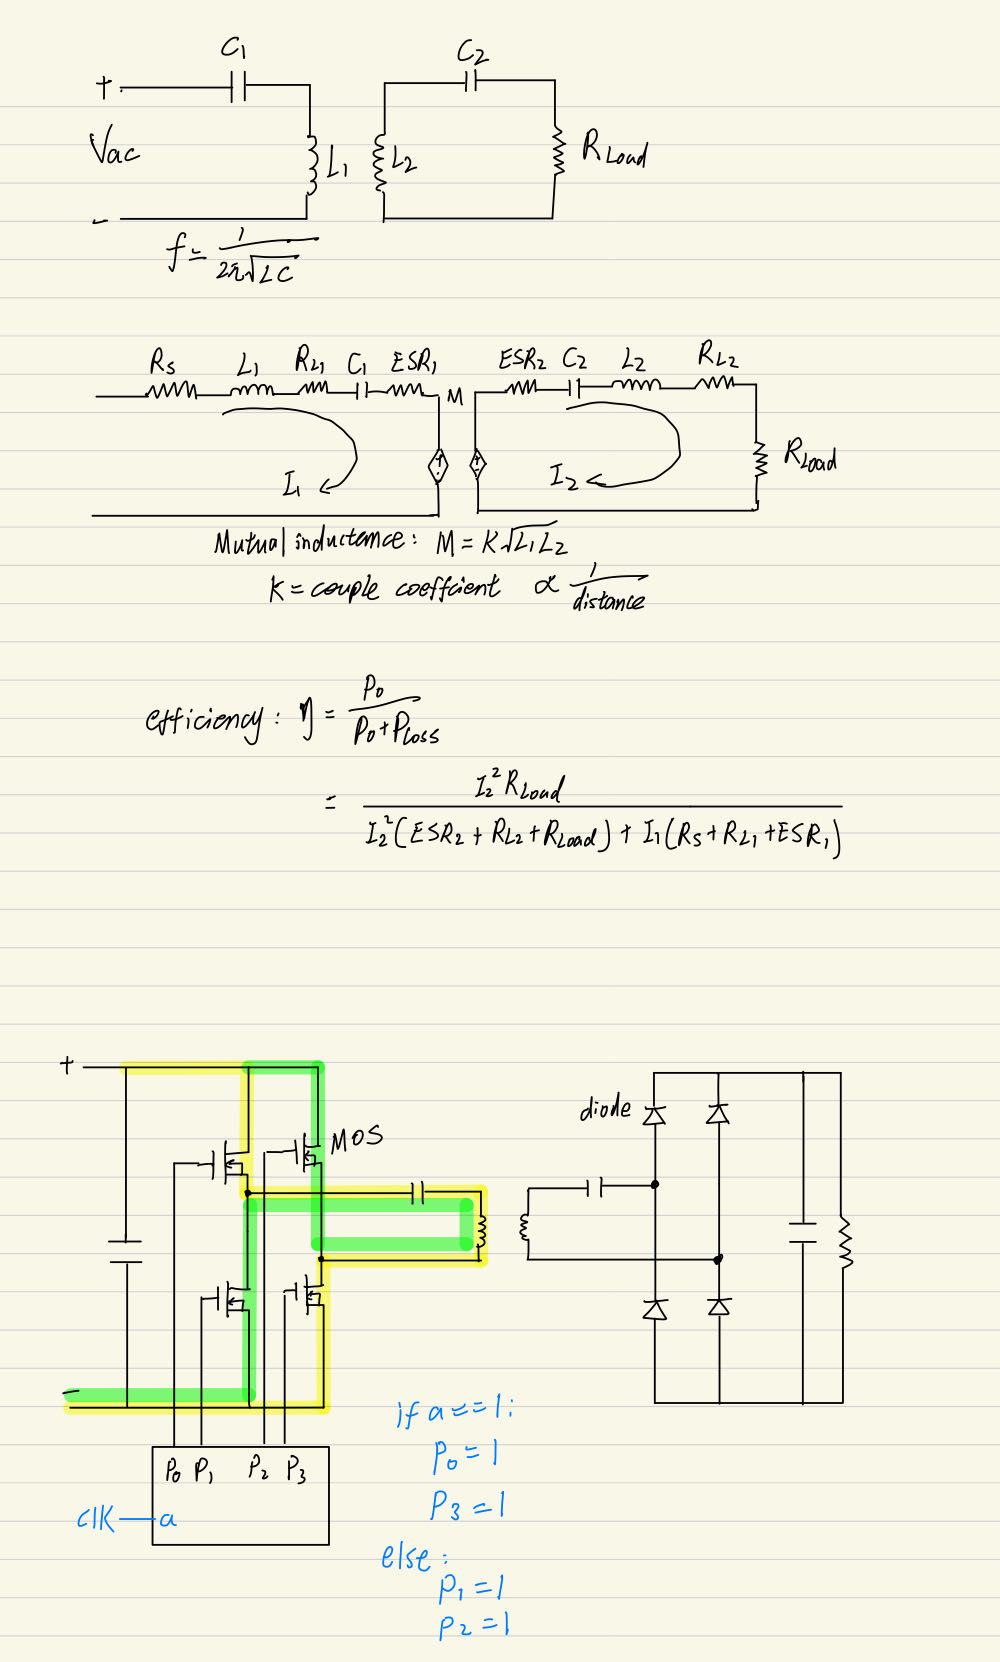 C1
C2
+
Vac
L1
L2
RLoad
-
f = 1/(2π√LC)
Rs L1 RL1 C1 ESR1 M ESR2 C2 L2 RL2
RLoad
I1
I2
Mutual inductance: M = K√L1L2
K = couple coeffcient ∝ 1/distance
efficiency: η = Po/(Po+PLoss)
= I2² RLoad / (I2²(ESR2 + RL2 + RLoad) + I1(Rs + RL1 + ESR1))
+
diode
MOS
-
if a == 1:
P0 = 1
P3 = 1
P0 P1 P2 P3
clk a
else:
P1 = 1
P2 = 1